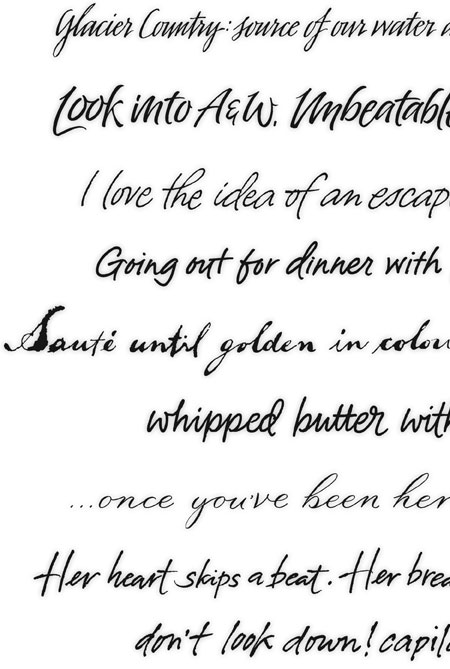 Glacier Country: source of our water
Look into A&W. Unbeatable
I love the idea of an escap
Going out for dinner with
Sauté until golden in colou
whipped butter with
...once you've been her
Her heart skips a beat. Her brea
don't look down! capil